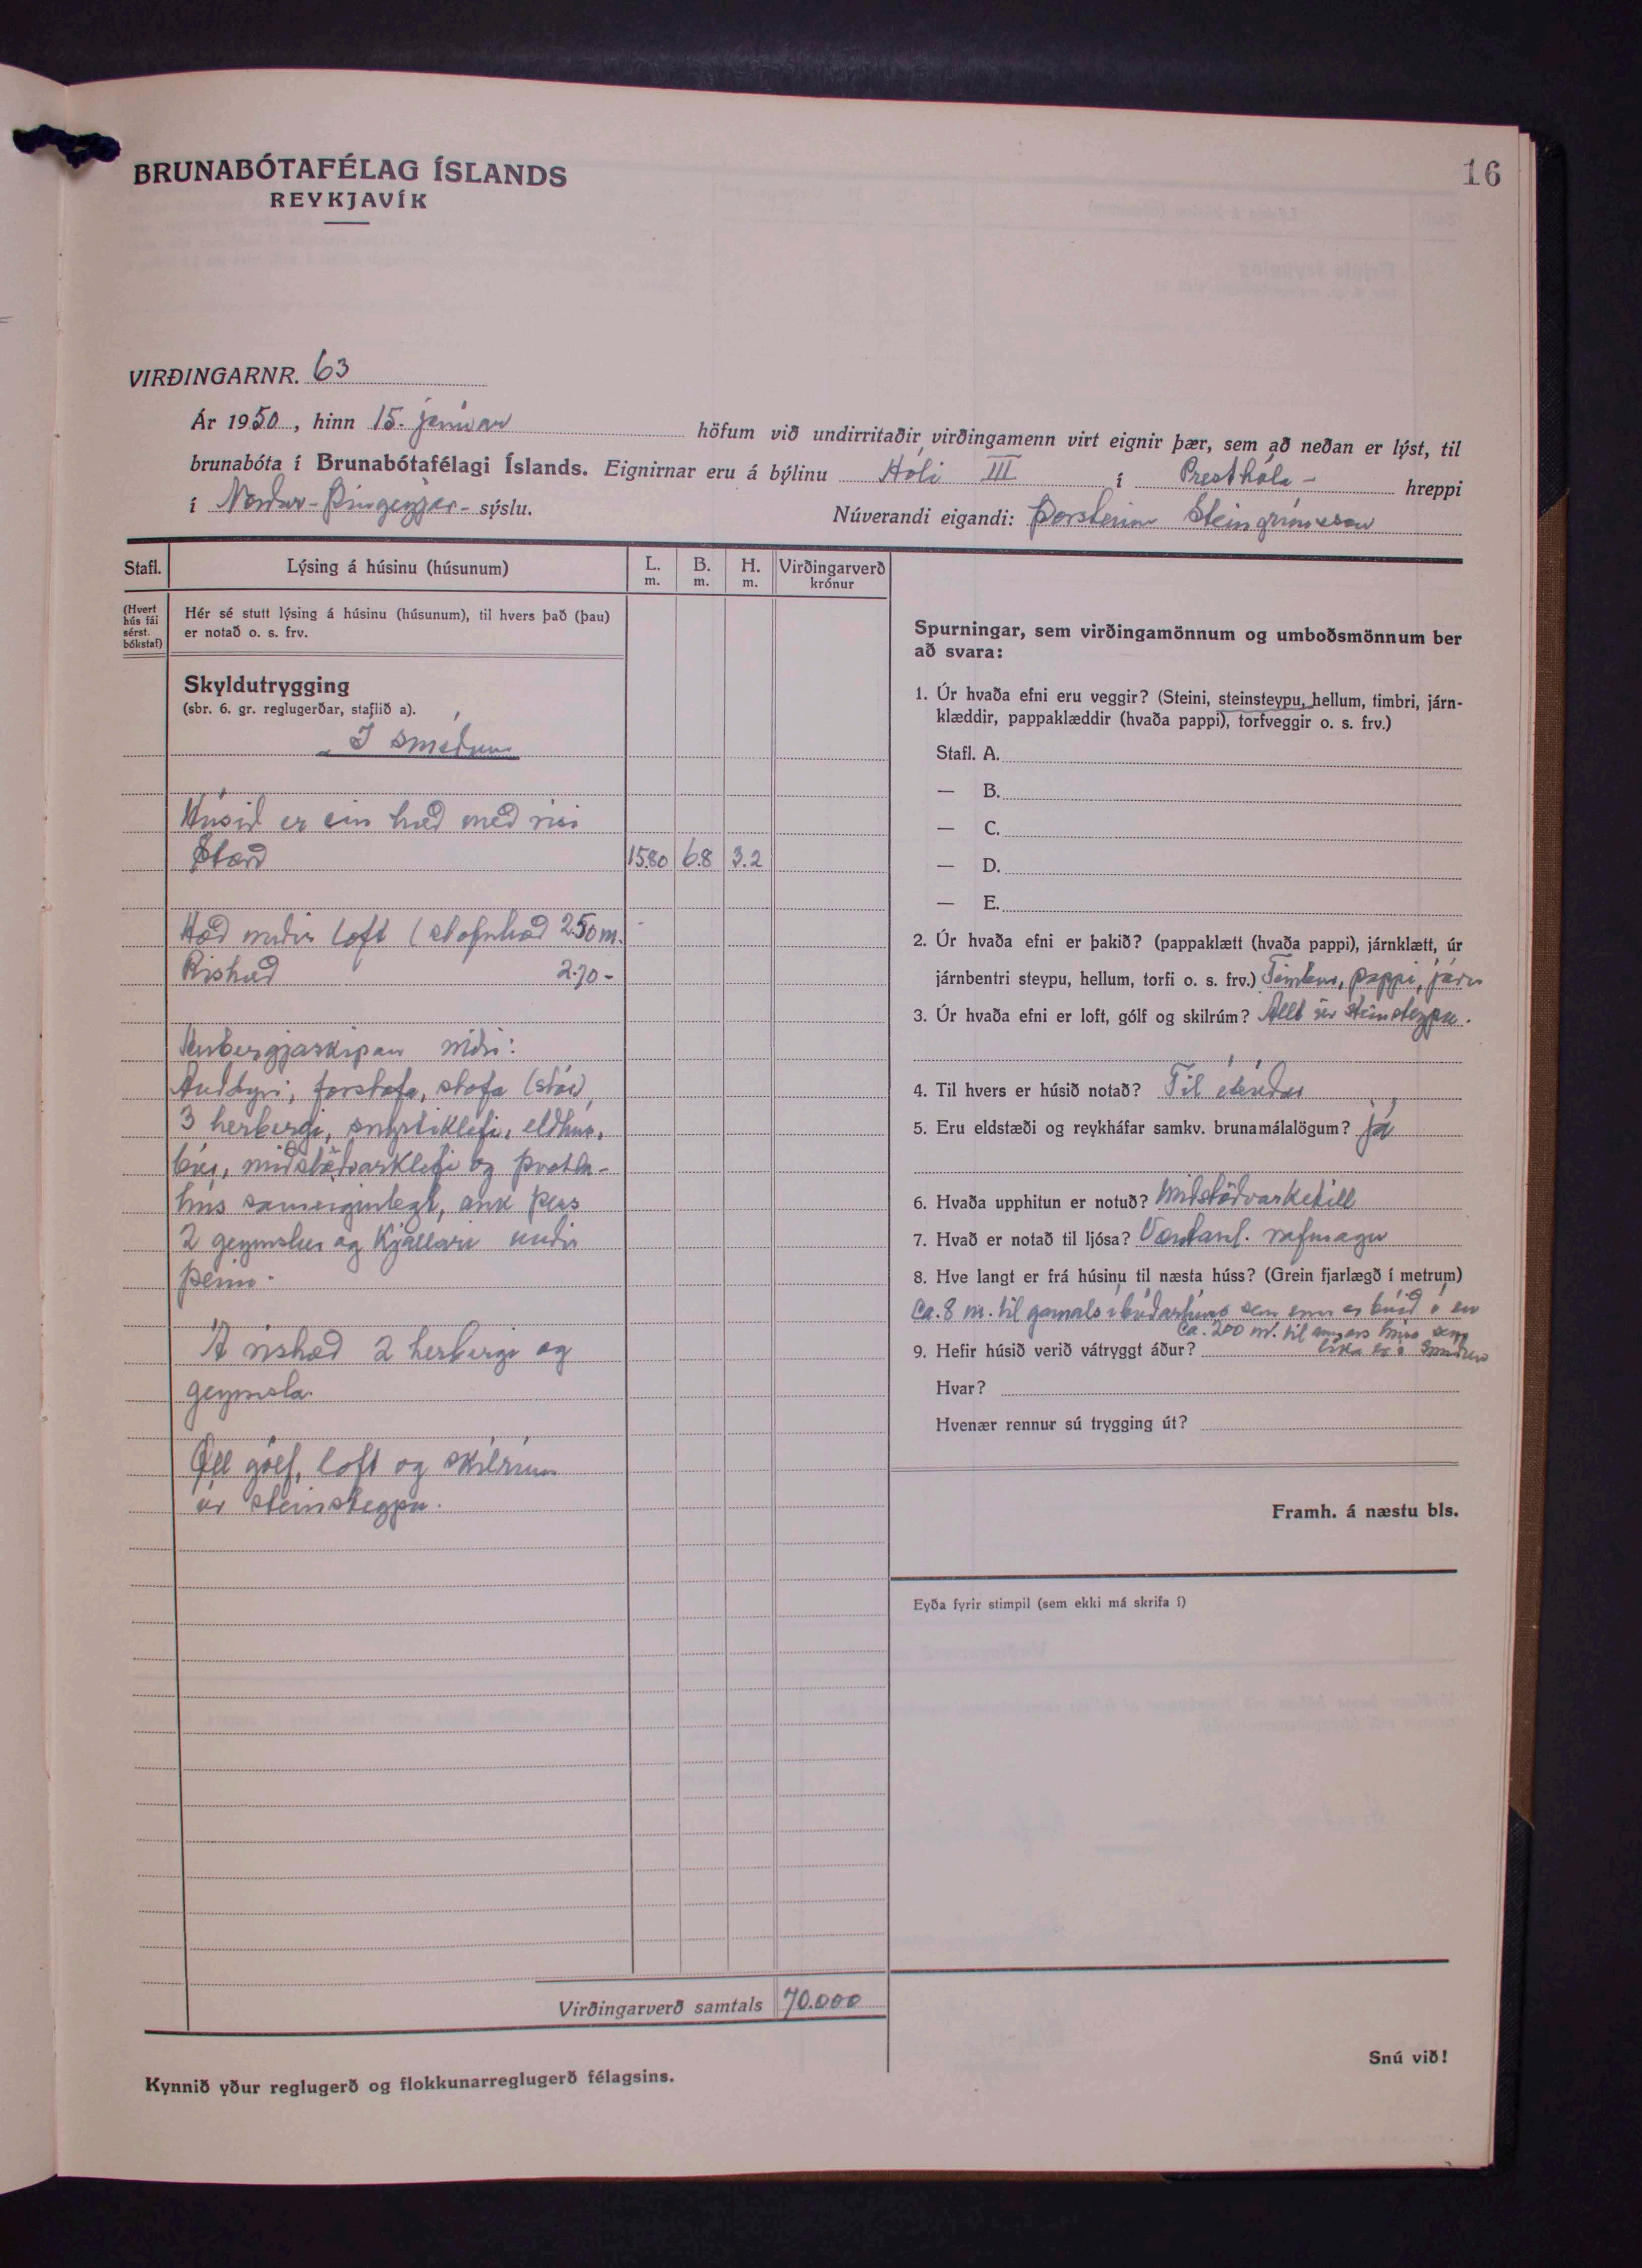 16
BRUNABÓTAFÉLAG ÍSLANDS
REYKJAVÍK
VIRÐINGARNR. 63
Ár 1950, hinn 15. janúar höfum við undirritaðir virðingamenn virt eignir þær, sem að neðan er lýst, til
brunabóta í Brunabótafélagi Íslands. Eignirnar eru á býlinu Hóli III í Presthóla- hreppi
í Norður-Þingeyjar- sýslu. Núverandi eigandi: Þorsteinn Steingrímsson
Stafl. Lýsing á húsinu (húsunum) L. m. B. m. H. m. Virðingarverð krónur
(Hvert hús fái sérst. bókstaf)
Hér sé stutt lýsing á húsinu (húsunum), til hvers það (þau)
er notað o. s. frv.
Skyldutrygging
(sbr. 6. gr. reglugerðar, staflið a).
Í smíðum
Húsið er ein hæð með risi
Stærð 15.80 6.8 3.2
Hæð undir loft (stofuhæð 2.50 m.
Rishæð 2.70 -
Herbergjaskipan niðri:
Anddyri, forstofa, stofa (stór),
3 herbergi, snyrtiklefi, eldhús,
búr, miðstöðvarklefi og þvotta-
hús sameiginlegt, auk þess
2 geymslur og Kjallari undir
þeim.
Á rishæð 2 herbergi og
geymsla.
Öll gólf, loft og skilrúm
úr steinsteypu.
Virðingarverð samtals 70.000
Kynnið yður reglugerð og flokkunarreglugerð félagsins.
Spurningar, sem virðingamönnum og umboðsmönnum ber
að svara:
1. Úr hvaða efni eru veggir? (Steini, steinsteypu, hellum, timbri, járn-
klæddir, pappaklæddir (hvaða pappi), torfveggir o. s. frv.)
Stafl. A.
— B.
— C.
— D.
— E.
2. Úr hvaða efni er þakið? (pappaklætt (hvaða pappi), járnklætt, úr
járnbentri steypu, hellum, torfi o. s. frv.) Timbur, pappi, járn
3. Úr hvaða efni er loft, gólf og skilrúm? Allt úr steinsteypu.
4. Til hvers er húsið notað? Til íbúðar
5. Eru eldstæði og reykháfar samkv. brunamálalögum? já
6. Hvaða upphitun er notuð? Miðstöðvarketill
7. Hvað er notað til ljósa? Væntanl. rafmagn
8. Hve langt er frá húsinu til næsta húss? (Grein fjarlægð í metrum)
Ca. 8 m. til gamals íbúðarhúss sem enn er búið í en
ca. 200 m. til annars húss sem
líka er í smíðum
9. Hefir húsið verið vátryggt áður?
Hvar?
Hvenær rennur sú trygging út?
Framh. á næstu bls.
Eyða fyrir stimpil (sem ekki má skrifa í)
Snú við!